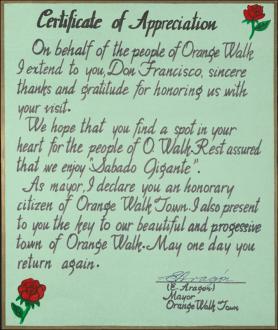 Certificate of Appreciation
On behalf of the people of Orange Walk
I extend to you, Don Francisco, sincere
thanks and gratitude for honoring us with
your visit.
We hope that you find a spot in your
heart for the people of O. Walk. Rest assured
that we enjoy "Sabado Gigante".
As mayor, I declare you an honorary
citizen of Orange Walk Town. I also present
to you the key to our beautiful and progessive
town of Orange Walk. May one day you
return again.
E Aragón
(E. Aragon)
Mayor
Orange Walk Town